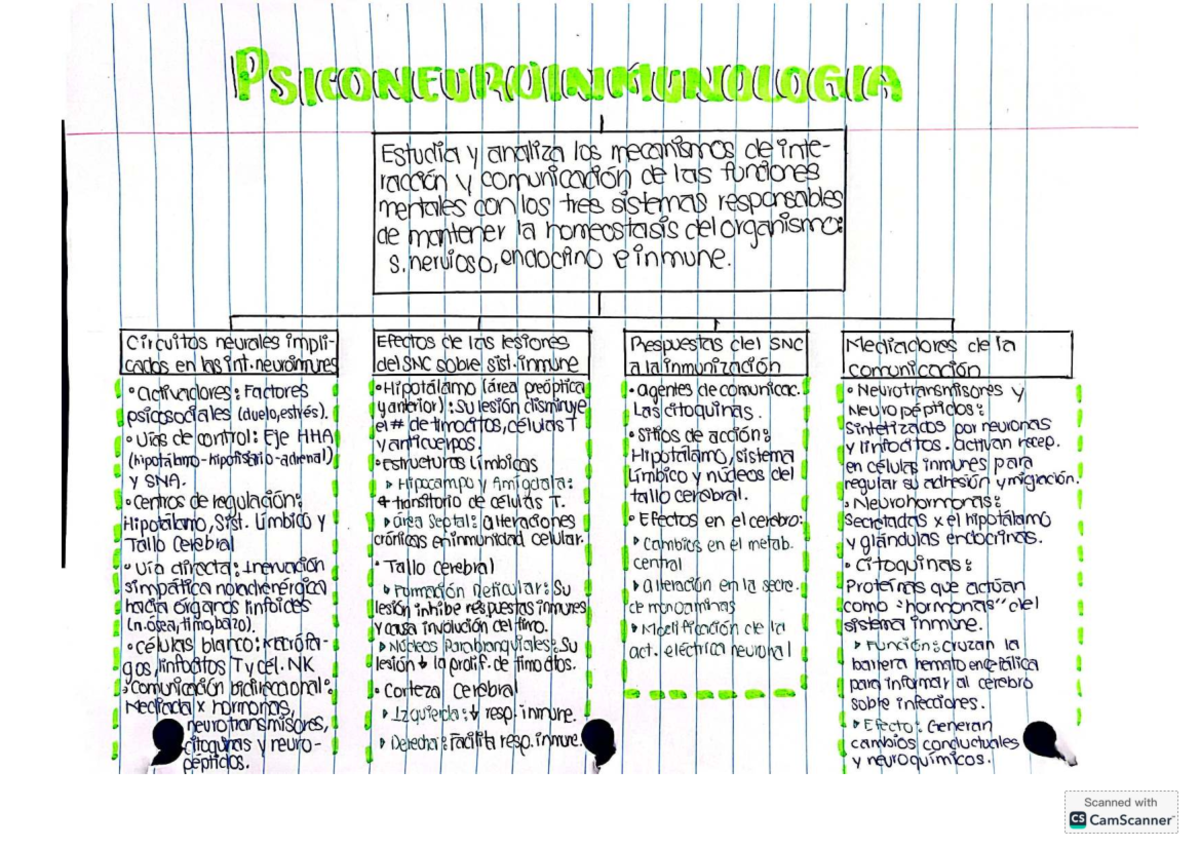 PSICONEUROINMUNOLOGIA
Estudia y analiza los mecanismos de inte-
racción y comunicación de las funciones
mentales con los tres sistemas responsables
de mantener la homeostasis del organismo:
s. nervioso, endocrino e inmune.
Circuitos neurales impli-
cados en las int. neuroinmunes
• Activadores: Factores
psicosociales (duelo, estrés).
• Vías de control: Eje HHA
(hipotálamo-hipofisiario-adrenal)
y SNA.
• Centros de regulación:
Hipotálamo, Sist. Límbico y
Tallo Cerebral
• Vía directa: Inervación
simpática noradrenérgica
hacia órganos linfoides
(n. ósea, timo, bazo).
• Células blanco: Macrófa-
gos, linfocitos T y cél. NK
• Comunicación bidireccional:
Mediada x hormonas,
neurotransmisores,
citoquinas y neuro-
péptidos.
Efectos de las lesiones
del SNC sobre sist. inmune
• Hipotálamo (área preóptica
y anterior): Su lesión disminuye
el # de timocitos, células T
y anticuerpos.
• Estructuras Límbicas
▸ Hipocampo y Amígdala:
↑ transitorio de células T.
▸ Área Septal: alteraciones
crónicas en inmunidad celular.
• Tallo cerebral
▸ Formación Reticular: Su
lesión inhibe respuestas inmunes
y causa involución del timo.
▸ Núcleos Parabranquiales: Su
lesión ↓ la prolif. de timocitos.
• Corteza Cerebral
▸ Izquierda: ↓ resp. inmune.
▸ Derecha: Facilita resp. inmune.
Respuestas del SNC
a la inmunización
• Agentes de comunicac.
Las citoquinas.
• Sitios de acción:
Hipotálamo, sistema
Límbico y núcleos del
tallo cerebral.
• Efectos en el cerebro:
▸ Cambios en el metab.
central
▸ Alteración en la secre.
de monoaminas
▸ Modificación de la
act. eléctrica neuronal
Mediadores de la
comunicación
• Neurotransmisores y
Neuropéptidos:
Sintetizados por neuronas
y linfocitos. activan recep.
en células inmunes para
regular su adhesión y migración.
• Neurohormonas:
Secretadas x el hipotálamo
y glándulas endocrinas.
• Citoquinas:
Proteínas que actúan
como "hormonas" del
sistema inmune.
▸ Función: Cruzan la
barrera hematoencefálica
para informar al cerebro
sobre infecciones.
▸ Efecto: Generan
cambios conductuales
y neuroquímicos.
Scanned with
CS CamScanner